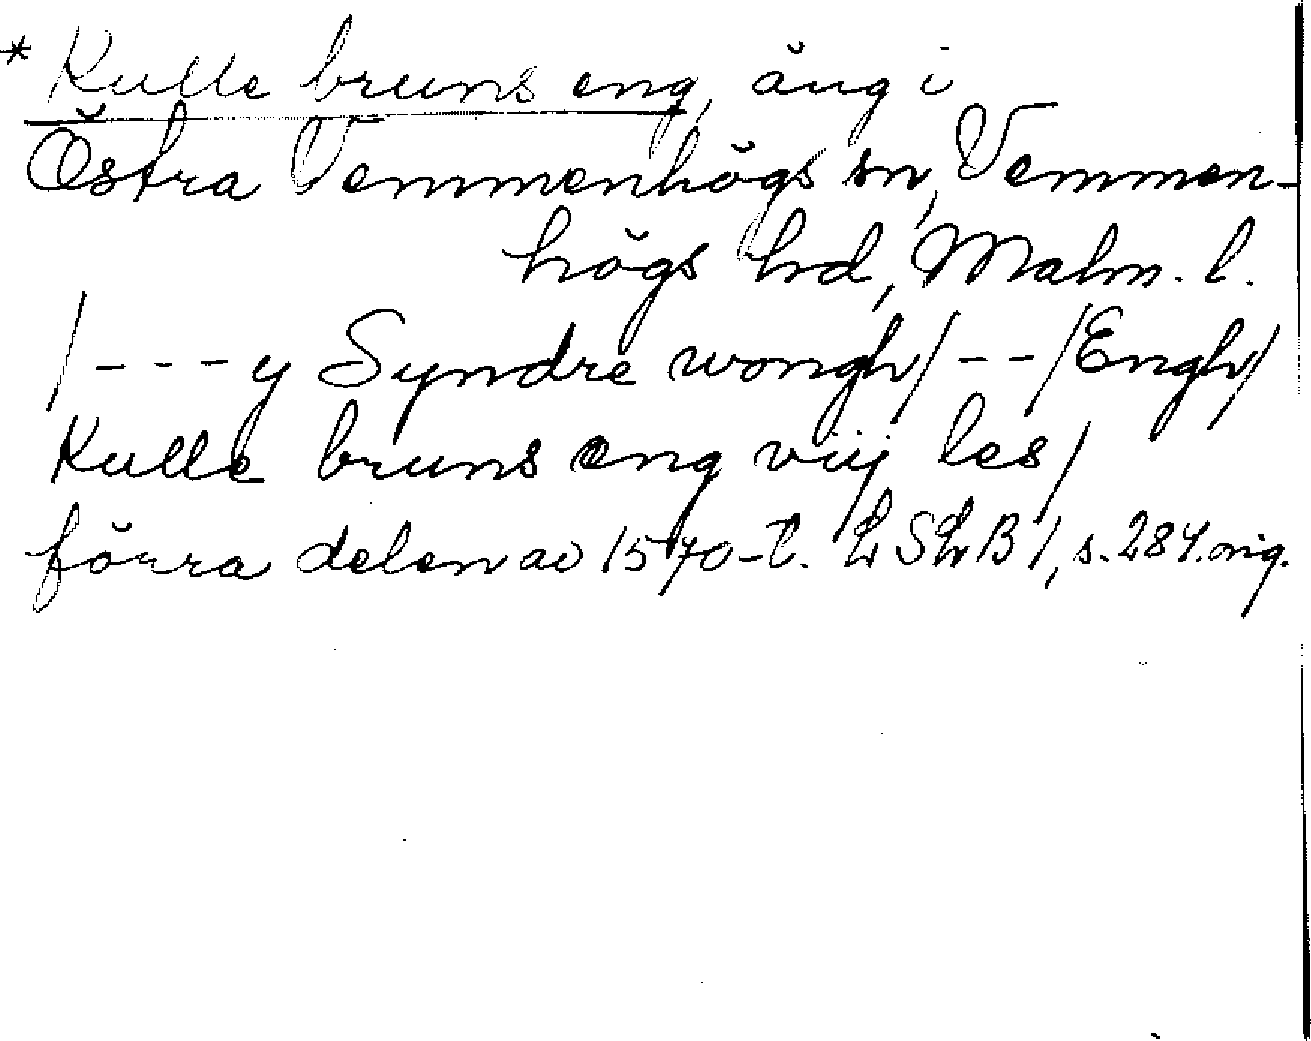 * Kulle bruns eng, äng i
Östra Vemmenhögs sn, Vemmen-
högs hd, Malm. l.
/---y Syndre wongh/--/Engh/
Kulle bruns eng viij les/
förra delen av 1570-t. LSLB 1, s. 284. orig.